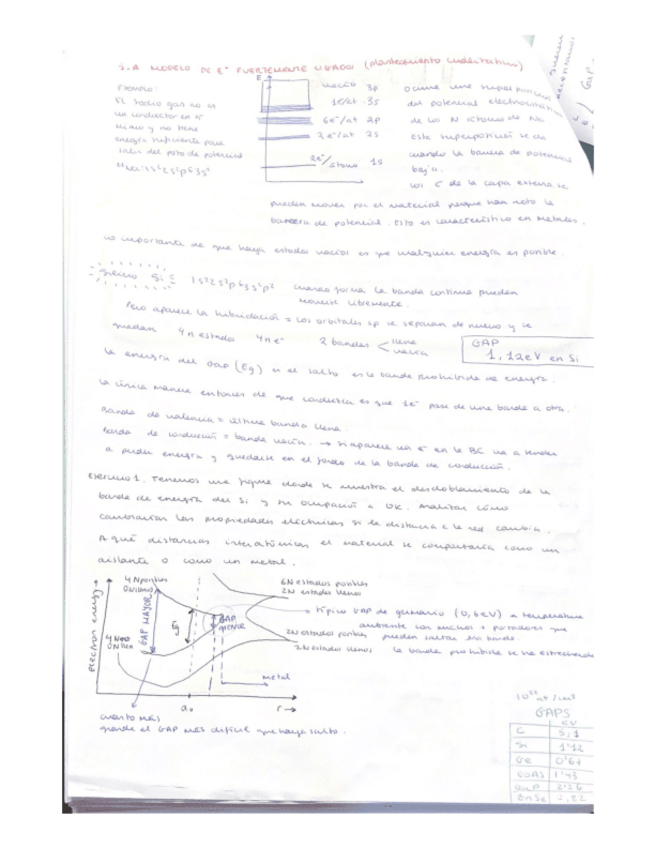 2.A MODELO DE E⁻ FUERTEMENTE LIGADOS (planteamiento cualitativo)
EJEMPLO:
El sodio gas no es
un conductor en sí
mismo y no tiene
energía suficiente para
salir del pozo de potencial
E
vacío 3p
1e/at 3s
6e⁻/at 2p
2e⁻/at 2s
2e⁻/átomo 1s
Ocurre una superposición
del potencial electrostático
de los N átomos de Na
esta superposición se da
cuando la barrera de potencial
baja.
Los e⁻ de la capa externa se
pueden mover por el material porque han roto la
barrera de potencial. Esto es característico en metales.
Lo importante de que haya estados vacíos es que cualquier energía es posible.
Silicio Si 1s²2s²p⁶3s²p² cuando forma la banda continua pueden
moverse libremente.
Pero aparece la hibridación = los orbitales sp se separan de nuevo y se
quedan 4n estados 4n e⁻ 2 bandas llena
vacía
GAP
1,12eV en Si
La energía del Gap (Eg) es el salto en la banda prohibida de energía.
La única manera entonces de que conduzca es que 1e⁻ pase de una banda a otra.
Banda de valencia = última banda llena.
Banda de conducción = banda vacía. → Si aparece un e⁻ en la BC va a tender
a perder energía y quedarse en el fondo de la banda de conducción.
Ejercicio 1. Tenemos una figura donde se muestra el desdoblamiento de la
banda de energía del Si y su ocupación a 0K. Analizar cómo
cambiarían las propiedades eléctricas si la distancia de la red cambia.
A qué distancias interatómicas el material se comportaría como un
aislante o como un metal.
electron energy →
4N posibles
0N llenos
GAP MAYOR
Eg
GAP
menor
6N estados posibles
2N estados llenos
típico GAP de germanio (0,6eV) a temperatura
ambiente son muchos + portadores que
pueden saltar esa banda.
2N estados posibles
2N estados llenos
la banda prohibida se va estrechando
metal
a₀
r →
cuanto más
grande el GAP más difícil que haya salto.
GAPS
eV
C 5,1
Si 1'12
Ge 0'67
GaAs 1'43
GaP 2'26